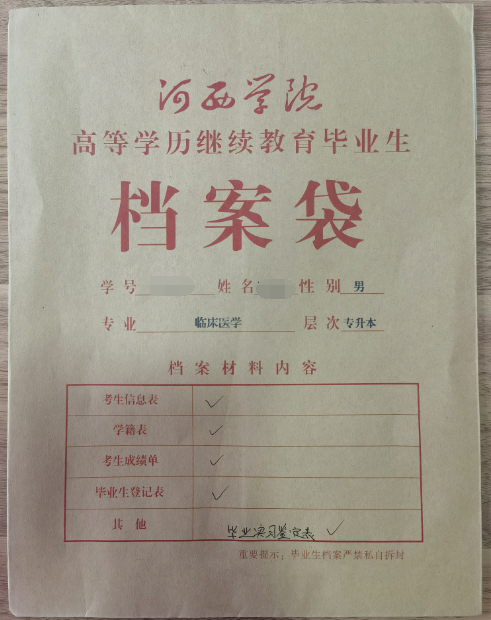 河西学院
高等学历继续教育毕业生
档案袋
学号 姓名 性别 男
专业 临床医学 层次 专升本
档案材料内容
考生信息表 ✓
学籍表 ✓
考生成绩单 ✓
毕业生登记表 ✓
其他 毕业实习鉴定表 ✓
重要提示：毕业生档案严禁私自拆封